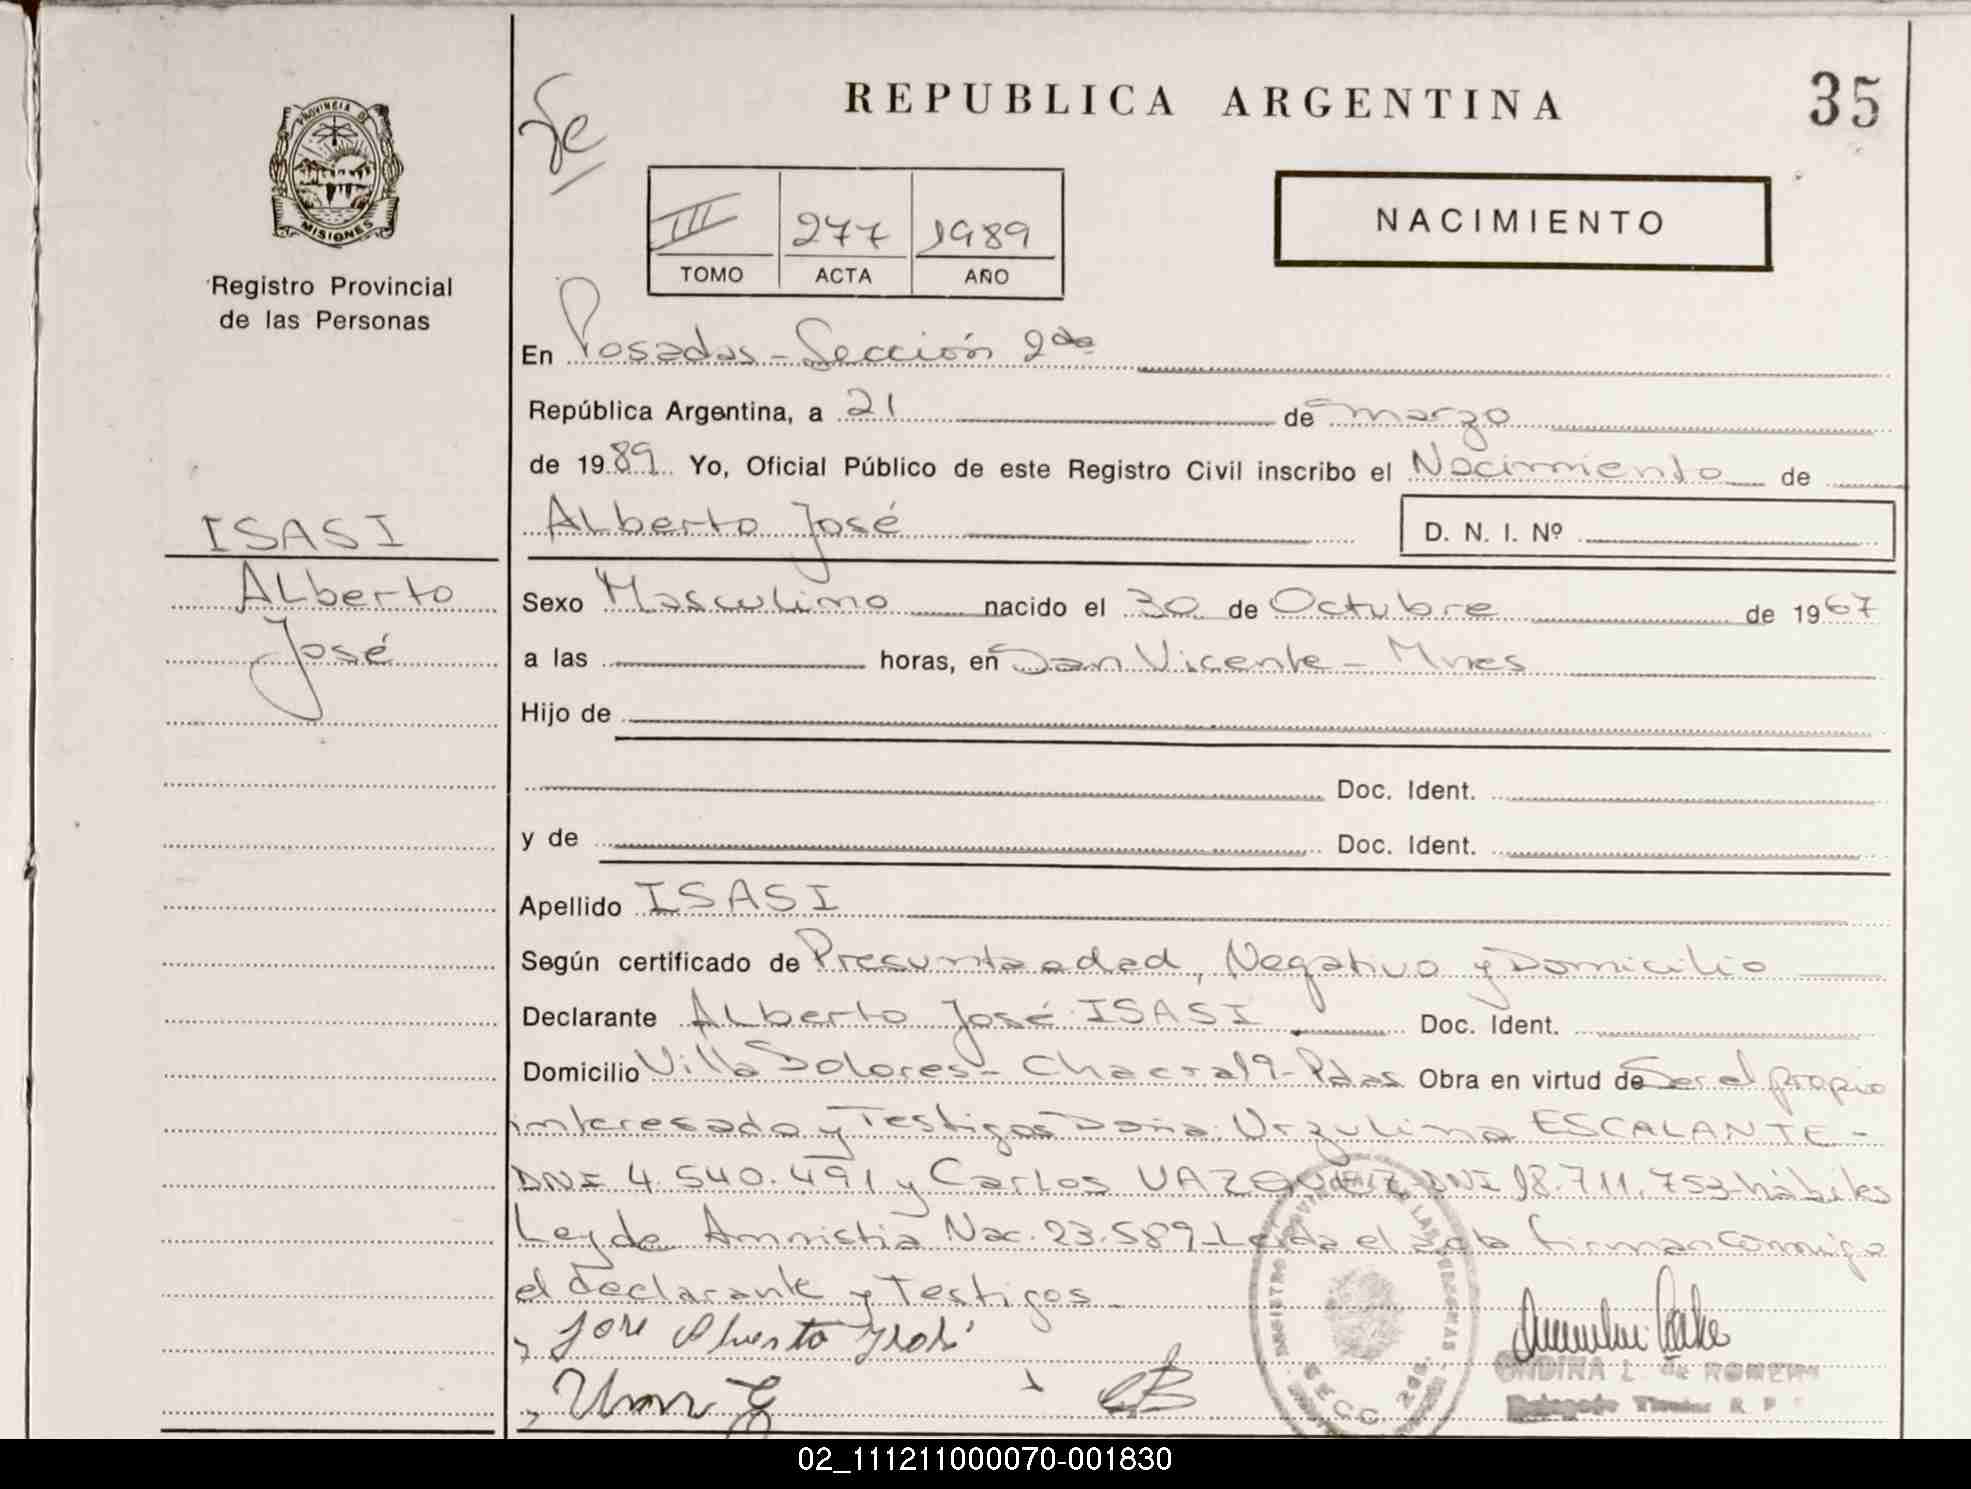 PROVINCIA DE
MISIONES
Registro Provincial
de las Personas
ISASI
Alberto
José
REPUBLICA ARGENTINA
35
III 277 1989
TOMO ACTA AÑO
NACIMIENTO
En Posadas - Sección 2da
República Argentina, a 21 de marzo
de 1989. Yo, Oficial Público de este Registro Civil inscribo el Nacimiento de
Alberto José
D. N. I. Nº
Sexo Masculino nacido el 30 de Octubre de 1967
a las horas, en San Vicente - Mnes
Hijo de
Doc. Ident.
y de Doc. Ident.
Apellido ISASI
Según certificado de Presunta edad, Negativo y Domicilio
Declarante Alberto José ISASI Doc. Ident.
Domicilio Villa Dolores - Chacra 19 - Pdas Obra en virtud de Ser el propio
interesado y Testigos Doña Urzulina ESCALANTE -
DNI 4.540.491 y Carlos VAZQUEZ DNI 18.711.753 hábiles
Ley de Amnistia Nac. 23.589 Leida el acta firman conmigo
el declarante y Testigos
Jose Alberto Isasi
SECC 2da.
ONDINA L. de ROMERO
Delegado Titular R. P.
02_111211000070-001830